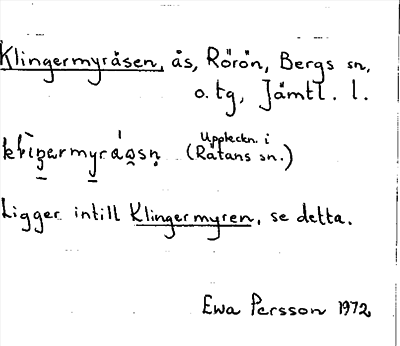 Klingermyråsen, ås, Rörön, Bergs sn,
o. tg, Jämtl. l.
Uppteckn. i
(Rätans sn.)
Ligger intill Klingermyren, se detta.
Ewa Persson 1972